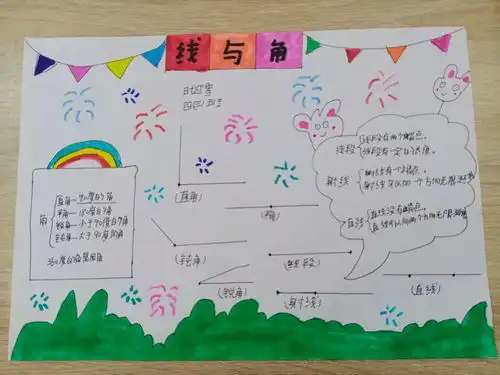 线与角
四(5)班
直角—90度的角
平角—180度的角
角
锐角—小于90度的角
钝角—大于90度的角
360度的角是周角
(直角)
(平角)
(钝角)
(锐角)
(线段)
(射线)
(直线)
线段
线段有两个端点。
线段有一定的长度。
射线
射线有一个端点。
射线可以向一个方向无限延长
直线
直线没有端点。
直线可以向两个方向无限延长